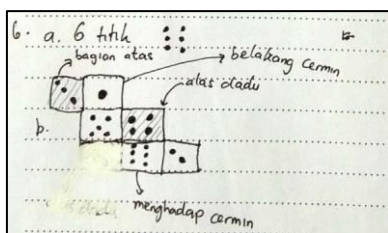 6. a. 6 titik
bagian atas
belakang cermin
alas dadu
b.
menghadap cermin